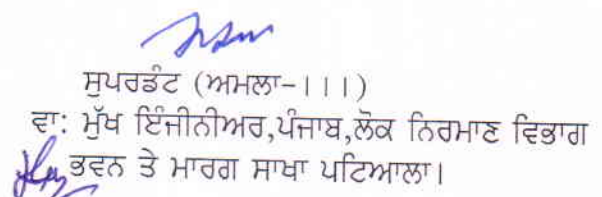 ਸੁਪਰਡੰਟ (ਅਮਲਾ-।।।)
ਵਾ: ਮੁੱਖ ਇੰਜੀਨੀਅਰ,ਪੰਜਾਬ,ਲੋਕ ਨਿਰਮਾਣ ਵਿਭਾਗ
ਭਵਨ ਤੇ ਮਾਰਗ ਸਾਖਾ ਪਟਿਆਲਾ।